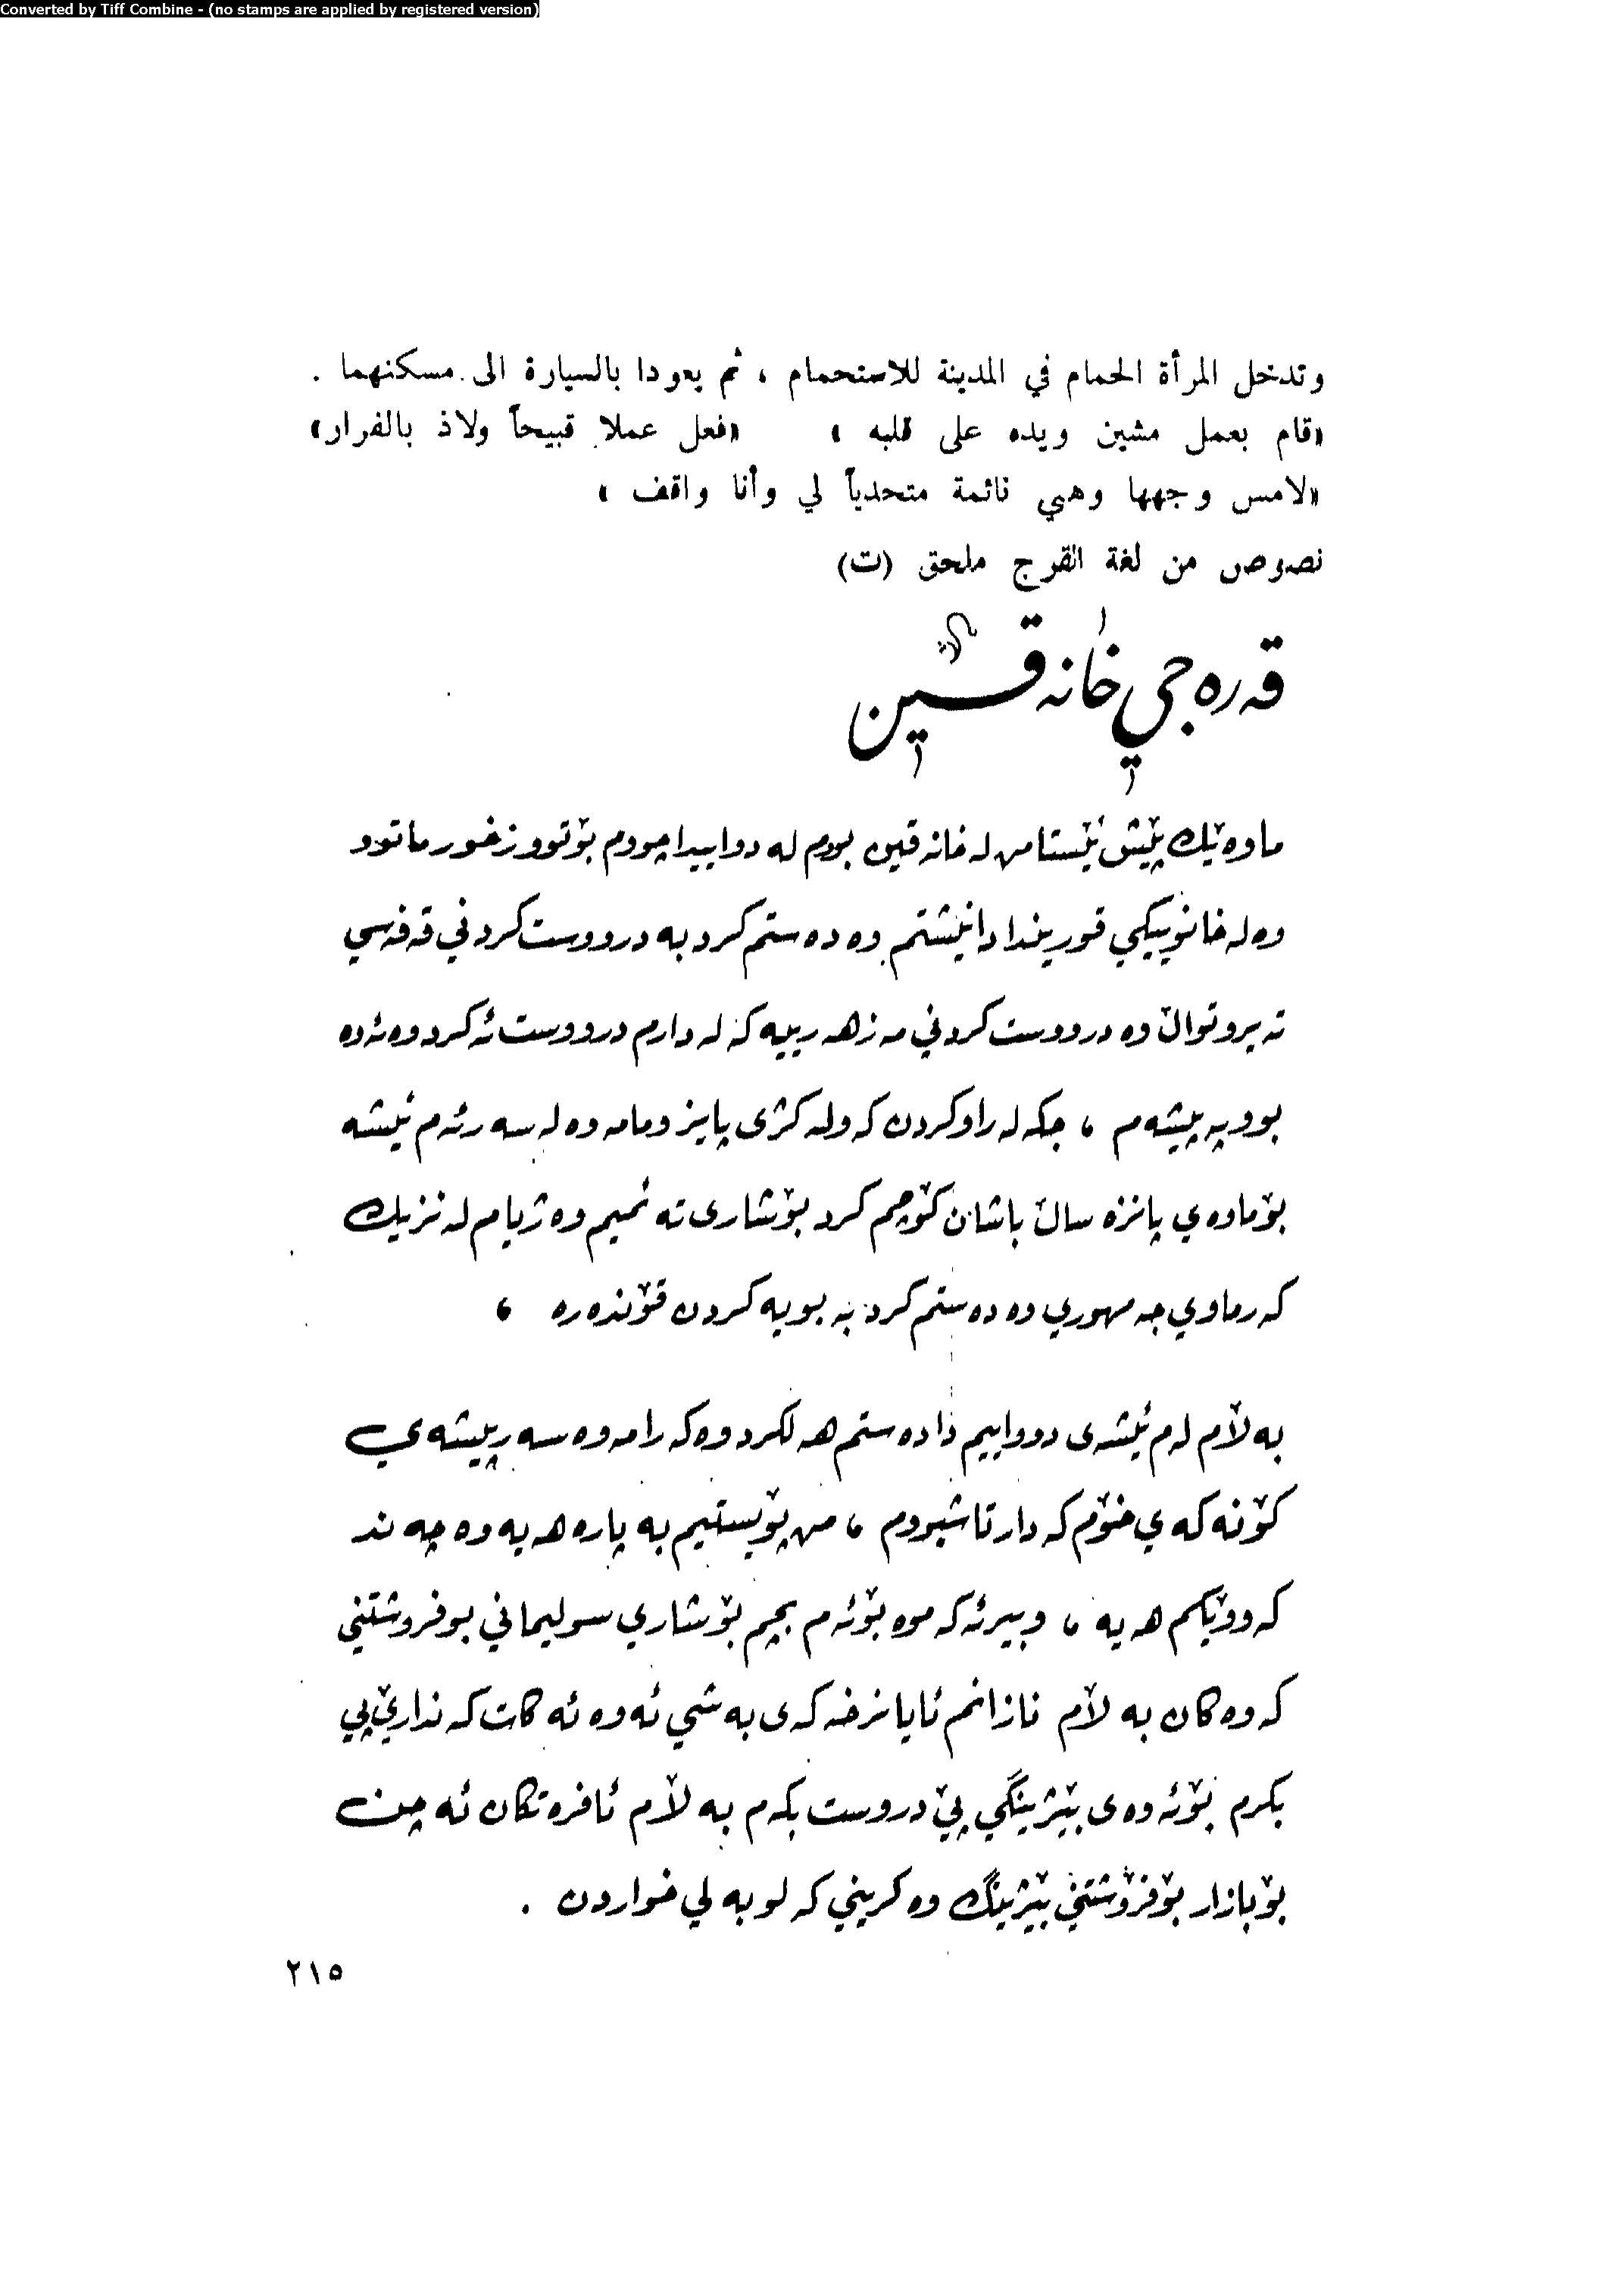 Converted by Tiff Combine - (no stamps are applied by registered version)
وتدخل المرأة الحمام في المدينة للاستحمام ، ثم يعودا بالسيارة الى مسكنهما .
«قام بعمل مشين ويده على قلبه » «فعل عملا قبيحاً ولاذ بالفرار»
«لامس وجهها وهي نائمة متحدياً لي وأنا واقف »
نصوص من لغة القرج ملحق (ت)
قەرەجي خانەقـــين
ماوەێك پێش ئێستا من لە خانەقين بووم لە دواييدا چووم بۆ توو زخورماتوو
وە لە خانوويێكي قوريندا دانێشتم وە دەستم كرد بە درووست كردني قەفەسي
تەيروتواڵ وە درووست كردني مەزهەرييە كە لە دارم درووست ئەكرد وە ئەوە
بوو بە پيشەم ، جگە لە راوكردن كە ولە كژى پايز ومامەوە لە سەر ئەم ئيشە
بۆ ماوەي پانزە ساڵ باشان كۆچم كرد بۆ شارى تەئميم وە ژيام لە نزيك
كەرماوي جەمهوري وە دەستم كرد بە بويەكردن قۆندەرە ،
بەلآم لەم ئيشەى دوواييم دا دەستم هەلگرد وەكەرامەوە سەر پيشەي
كۆنەكەي خۆم كە دارتاشبووم ، من پۆيستيم بە پارە هەيە وە چەند
كەووێكم هەيە ، وبيرئەكەموە بۆئەم بچم بۆ شاري سوليماني بو فروشتني
كەوەكان بەلآم نازانم ئايا نرخەكەى بەشي ئەوە ئەكات كە نداريێ پي
بكرم بۆئەوەى بێژينگي پێ دروست بكەم بەلآم ئافرەتكان ئەچن
بۆ بازار بۆ فرۆشتني بێژينگ وە كريني كەلوبەلي خواردن .
٢١٥